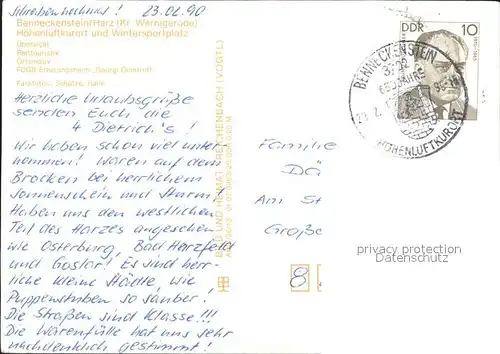 Schreiben nochmal! 23.02.90
Benneckenstein/Harz (Kr. Wernigerode)
Höhenluftkurort und Wintersportplatz
Übersicht
Rasttouristik
Ortsmotiv
FDGB-Erholungsheim
Herzliche Urlaubsgrüße
senden Euch die
4 Dietrich's!
Wir haben schon viel unter-
nommen! Waren auf dem
Brocken bei herrlichem
Sonnenschein und Sturm!
Haben uns den westlichen
Teil des Harzes angesehen
wie Osterburg, Bad Harzfeld
und Goslar! Es sind herr-
liche kleine Städte, wie
Puppenstuben so sauber!
Die Straßen sind Klasse!!!
Die Warenfülle hat uns sehr
nachdenklich gestimmt!
BILD UND HEIMAT REICHENBACH (VOGTL)
DDR 10
BENNECKENSTEIN
HÖHENLUFTKURORT
Familie
Dä
Am St
Große
8
privacy protection
Datenschutz